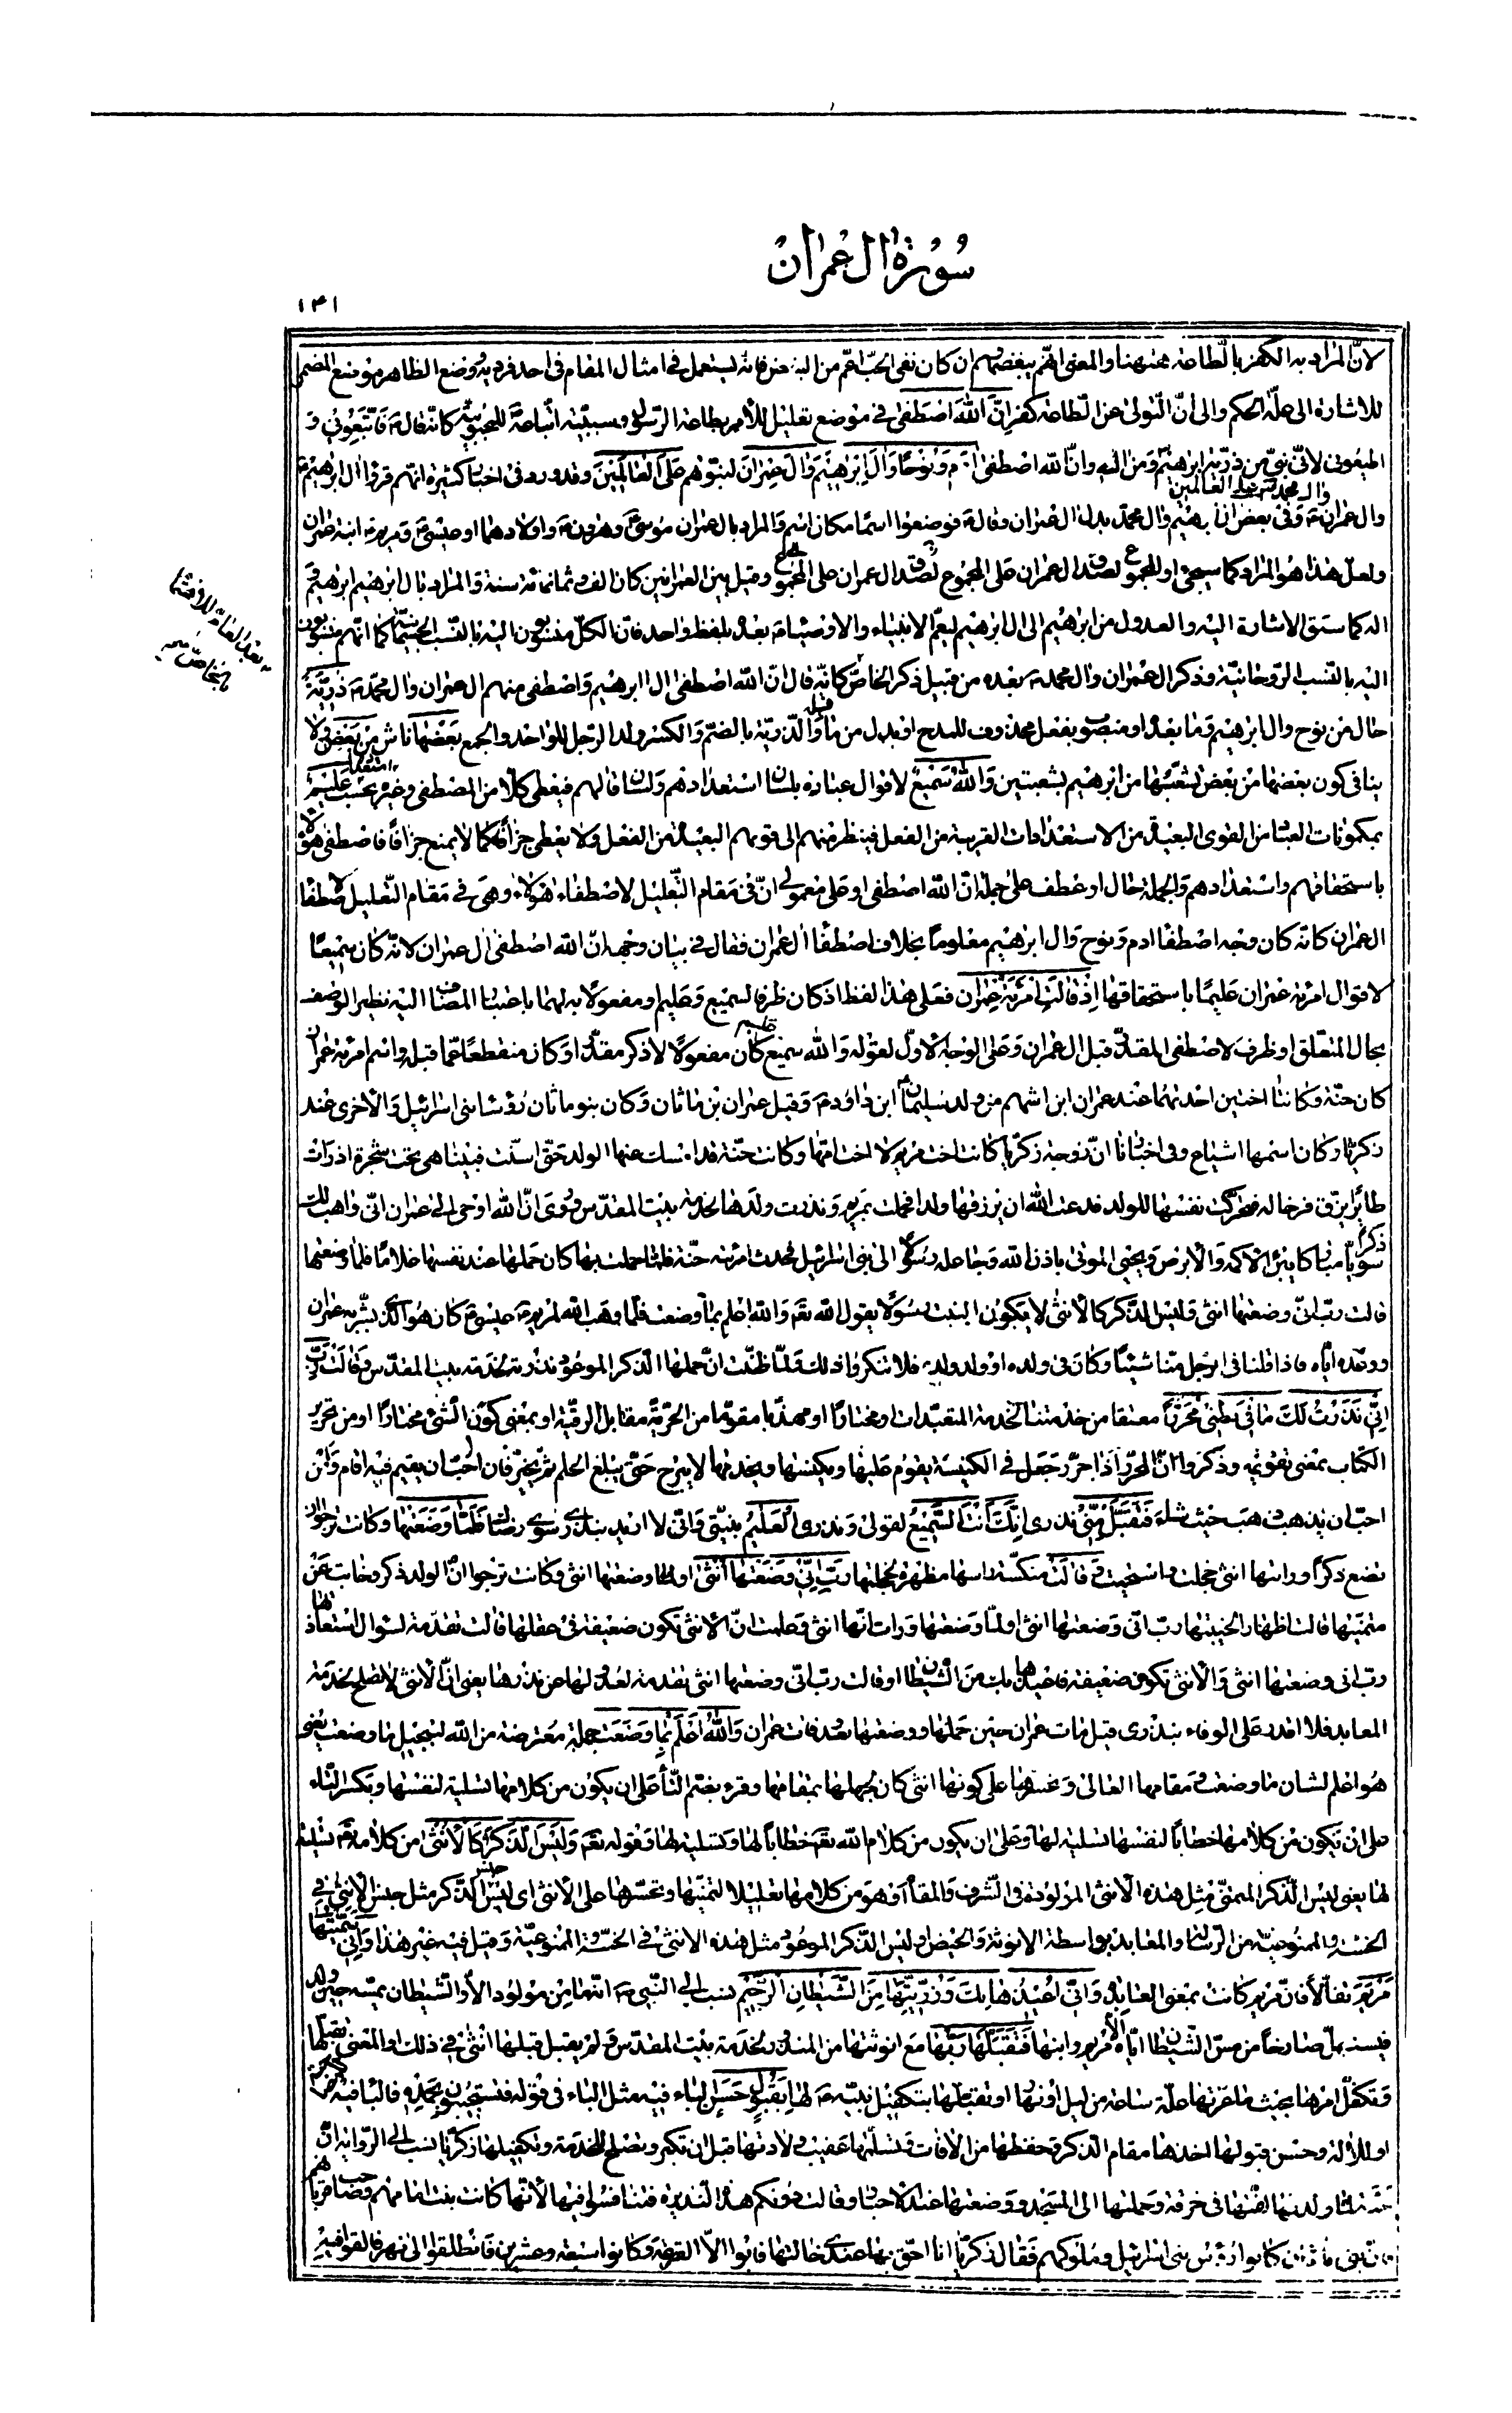 سورة ال عمران
١٤١
لانّ المراد به الكفر بالطاعة ههنا والمعنى انّهم يبغضهم وان كان نفى الحبّ اعمّ من البغض فانّه يستعمل فى امثال المقام فى احد فرديه ووضع الظاهر موضع المضمر
للاشارة الى علّة الحكم والى انّ التّولى عن الطاعة كفر اِنَّ اللهَ اصْطَفىٰ فى موضع تعليل للأمر بطاعة الرّسول وسببيّة اتّباعه للمحبوبيّة كانّه قال فاتّبعونى و
اطيعونى لانّى نبىّ من ذرّية ابرهيم ومن اله وانّ الله اصطفى اٰدَمَ وَنُوحًا وَاٰلَ اِبْرٰهيمَ وَاٰلَ عِمْرانَ لنبوّتهم عَلَى الْعالَمينَ وقد ورد فى اخبار كثيرة انّهم قرؤا ال ابرهيم
وال محمد على العالمين
وال عمران وفى بعض ال ابرهيم وال محمد بدل ال عمران وقال فوضعوا اسمًا مكان اسم والمراد بال عمران موسى وهرون واولادهما او عيسى ومريم ابنة عمران
ولعلّ هذا هو المراد كما سيجئ او المجموع لصدق ال عمران على المجموع وقيل بين العمرانين كان الف وثمانمائة سنة والمراد بال ابرهيم ابرهيم و
اله كما سبق الاشارة اليه والعدول من ابرهيم الى ال ابرهيم ليعمّ الانبياء والاوصياء بعده بلفظ واحد فانّ الكلّ منسوبون اليه بالنّسب الجسمانيّة كما انّهم منسوبون
اليه بالنّسب الرّوحانيّة وذكر ال عمران وال محمد بعده من قبيل ذكر الخاصّ كانّه قال انّ الله اصطفى ال ابرهيم واصطفى منهم ال عمران وال محمد ذُرِّيَّةً
حال من نوح وال ابرهيم وما بعده او منصوب بفعل محذوف للمدح او بدل ممّا قبله والذّريّة بالضّم والكسر ولد الرّجل للواحد والجمع بَعْضُها ناش مِنْ بَعْضٍ ولا
ينافى كون بعضها من بعض تشعّبها من ابرهيم بشعبتين وَاللهُ سَميعٌ لاقوال عباده بلسان استعدادهم ولسان قالهم فيعطى كلّا من المصطفى وغيره بحسب استعداده عَليمٌ
بمكنونات العباد من القوى البعيدة من الاستعدادات القريبة من الفعل فينظر منهم الى قوّتهم البعيدة من الفعل ولا يعطى جزافًا كما لا يمنع جزافًا فاصطفى هؤلاء
باستحقاقهم واستعدادهم والجملة حال او عطف على جملة انّ الله اصطفى او على معمولى انّ فى مقام التّعليل لاصطفاء هؤلاء وهى فى مقام التّعليل لاصطفاء
ال عمران كانّه كان وجه اصطفاء ادم ونوح وال ابرهيم معلومًا بخلاف اصطفاء ال عمران فقال فى بيان وجهه انّ الله اصطفى ال عمران لانّه كان سميعًا
لاقوال امرءة عمران عليمًا باستحقاقها اِذْ قالَتِ امْرَاَةُ عِمْرانَ فعلى هذا لفظ اذ كان ظرفًا لسميع وعليم او مفعولًا به لهما باعتبار المضاف اليه نظير الوصف
بحال المتعلّق او ظرف لاصطفى المقدّر قبل ال عمران وعلى الوجه الاوّل لقوله والله سميع عليم كان مفعولًا لاذكر مقدّرًا وكان منقطعًا عمّا قبله واسم امرءة عمران
كان حنّة وكانتا اختين احدٰهما عند عمران ابن اشهم من ولد سليمان ابن داود وقيل عمران بن ماثان وكان بنو ماثان رؤساء بنى اسرائيل والاخرى عند
زكريّا وكان اسمها اشياع وفى اخبارنا انّ زوجة زكريّا كانت اخت مريم لا اخت امّها وكانت حنّة قد امسك عنها الولد حتّى اسنّت فبينا هى تحت شجرة اذ رأت
طائرًا يزقّ فرخا له فتحرّكت نفسها للولد فدعت الله ان يرزقها ولدا فحملت بمريم ونذرت ولدها لخدمة بيت المقدّس وروى انّ الله اوحى الى عمران انّى واهب لك
ذكرًا سويّا مباركا يبرئ الاكمه والابرص ويحيى الموتى باذن الله وجاعله رسولًا الى بنى اسرائيل فحدث امرءته حنّة فلمّا حملت بها كان حملها عند نفسها غلامًا فلمّا وضعتها
قالت ربّ انّى وضعتها انثى وليس الذّكر كالانثى لا يكون البنت رسولًا يقول الله تعٰ والله اعلم بما وضعت فلمّا وهب الله لمريم عيسى كان هو الّذى بشّر به عمران
ووعده ايّاه فاذا قلنا فى الرّجل منّا شيئًا وكان فى ولده او ولد ولده فلا تنكروا ذلك ولمّا ظنّت انّ حملها الذّكر الموعود نذرته لخدمة بيت المقدّس وقالت رَبِّ
اِنّى نَذَرْتُ لَكَ ما فى بَطْنى مُحَرَّرًا معتقا من خدمتنا لخدمة المتعبّدات او مختارًا او مهذّبا مقوّما من الحرّيّة مقابل الرّقيّة او بمعنى كون الشّئ مختارًا او من تحرير
الكتاب بمعنى تقويمه وذكروا انّ المحرّر اذا حرّر جعل فى الكنيسة يقوم عليها ويكنسها ويخدمها لا يبرح حتّى يبلغ الحلم ثمّ يخيّر فان احبّ ان يقيم فيه اقام وان
احبّ ان يذهب ذهب حيث شاء فَتَقَبَّلْ مِنّى نذرى اِنَّكَ اَنْتَ السَّميعُ لقولى ونذرى الْعَليمُ بنيّتى وانّى لا اريد بنذرى سوى رضاك فَلَمّا وَضَعَتْها وكانت ترجو ان
تضع ذكرًا ورأتها انثى خجلت واستحيت وقالَتْ منكّسة رأسها مظهرة لخجلتها رَبِّ اِنّى وَضَعْتُها اُنْثى او لمّا وضعتها انثى وكانت ترجو انّ الولد ذكر وخابت عن
متمنّيها قالت اظهارًا لخيبتها ربّ انّى وضعتها انثى او لمّا وضعتها ورأت انّها انثى وعلمت انّ الانثى تكون ضعيفة فى عقلها قالت تقدمة لسؤال استعاذتها
ربّ انّى وضعتها انثى والانثى تكون ضعيفة فاعيذها بك من الشّيطان او قالت ربّ انّى وضعتها انثى تقدمة لعدولها عن نذرها يعنى انّ الانثى لا تصلح لخدمة
المعابد فلا اقدر على الوفاء بنذرى قيل مات عمران حين حملها ووضعتها بعد فات عمران وَاللهُ اَعْلَمُ بِما وَضَعَتْ جملة معترضة من الله لتبجيل ما وضعت يعنى
هو اعلم لشان ما وضعت ومقامها العالى وتحسّرها على كونها انثى كان لجهلها بمقامها وقرء بضمّ التّاء على ان يكون من كلامها تسلية لنفسها وبكسر التّاء
على ان يكون من كلامها خطابًا لنفسها تسلية لها وعلى ان يكون من كلام الله تعٰ خطابًا لها وتسلية لها وقوله تعٰ وَلَيْسَ الذَّكَرُ كَالْاُنْثى من كلامه تعٰ تسلية
لها يعنى ليس الذّكر المتمنّى مثل هذه الانثى المولودة فى الشّرف والمقام او هو من كلامها تعليلا لتمنّيها وتحسّرها على الانثى اى ليس جنس الذّكر مثل جنس الانثى فى
الخسّة والممنوعيّة من الرّسالة والمعابد بواسطة الانوثة والحيض او ليس الذّكر الموعود مثل هذه الانثى فى الخسّة والممنوعيّة وقيل فيه غير هذا وَاِنّى سَمَّيْتُها
مَرْيَمَ تفألًا فانّ مريم كانت بمعنى العابدة وَاِنّى اُعيذُها بِكَ وَذُرِّيَّتَها مِنَ الشَّيْطانِ الرَّجيمِ نسب الى النّبى انّه ما من مولود الّا والشّيطان يمسّه حين ولد
فيستهلّ صارخًا من مسّ الشّيطان ايّاه الّا مريم وابنها فَتَقَبَّلَها رَبُّها مع انوثتها من المنذور لخدمة بيت المقدّس ولم يقبل قبلها انثى فى ذلك والمعنى تقبّلها
وتكفّل امرها بحيث ما عرتها علّة ساعة من ليل او نهار او تقبّلها بتكفيل نبيّه لها بِقَبُولٍ حَسَنٍ الباء فيه مثل الباء فى قوله فتستجيبون بحمده فالباء فيه
او للالة وحسن قبولها اخذها مقام الذّكر وحفظها من الافات وتسلّمها عقيب ولادتها قبل ان تكبر وتصلح للخدمة وتكفيلها زكريّا نسب الى الرّواية انّ
حنّة لمّا ولدتها لفّتها فى خرقة وحملتها الى المسجد ووضعتها عند الاحبار وقالت دونكم هذه النّذيرة فتنافسوا فيها لانّها كانت بنت امامهم وصاحب قربانهم
فانّ بنى ماثان كانوا رؤس بنى اسرائيل وملوكهم فقال زكريّا انا احقّ بها عندى خالتها فابوا الّا القرعة وكانوا سبعة وعشرين فانطلقوا الى نهر فالقوا فيه